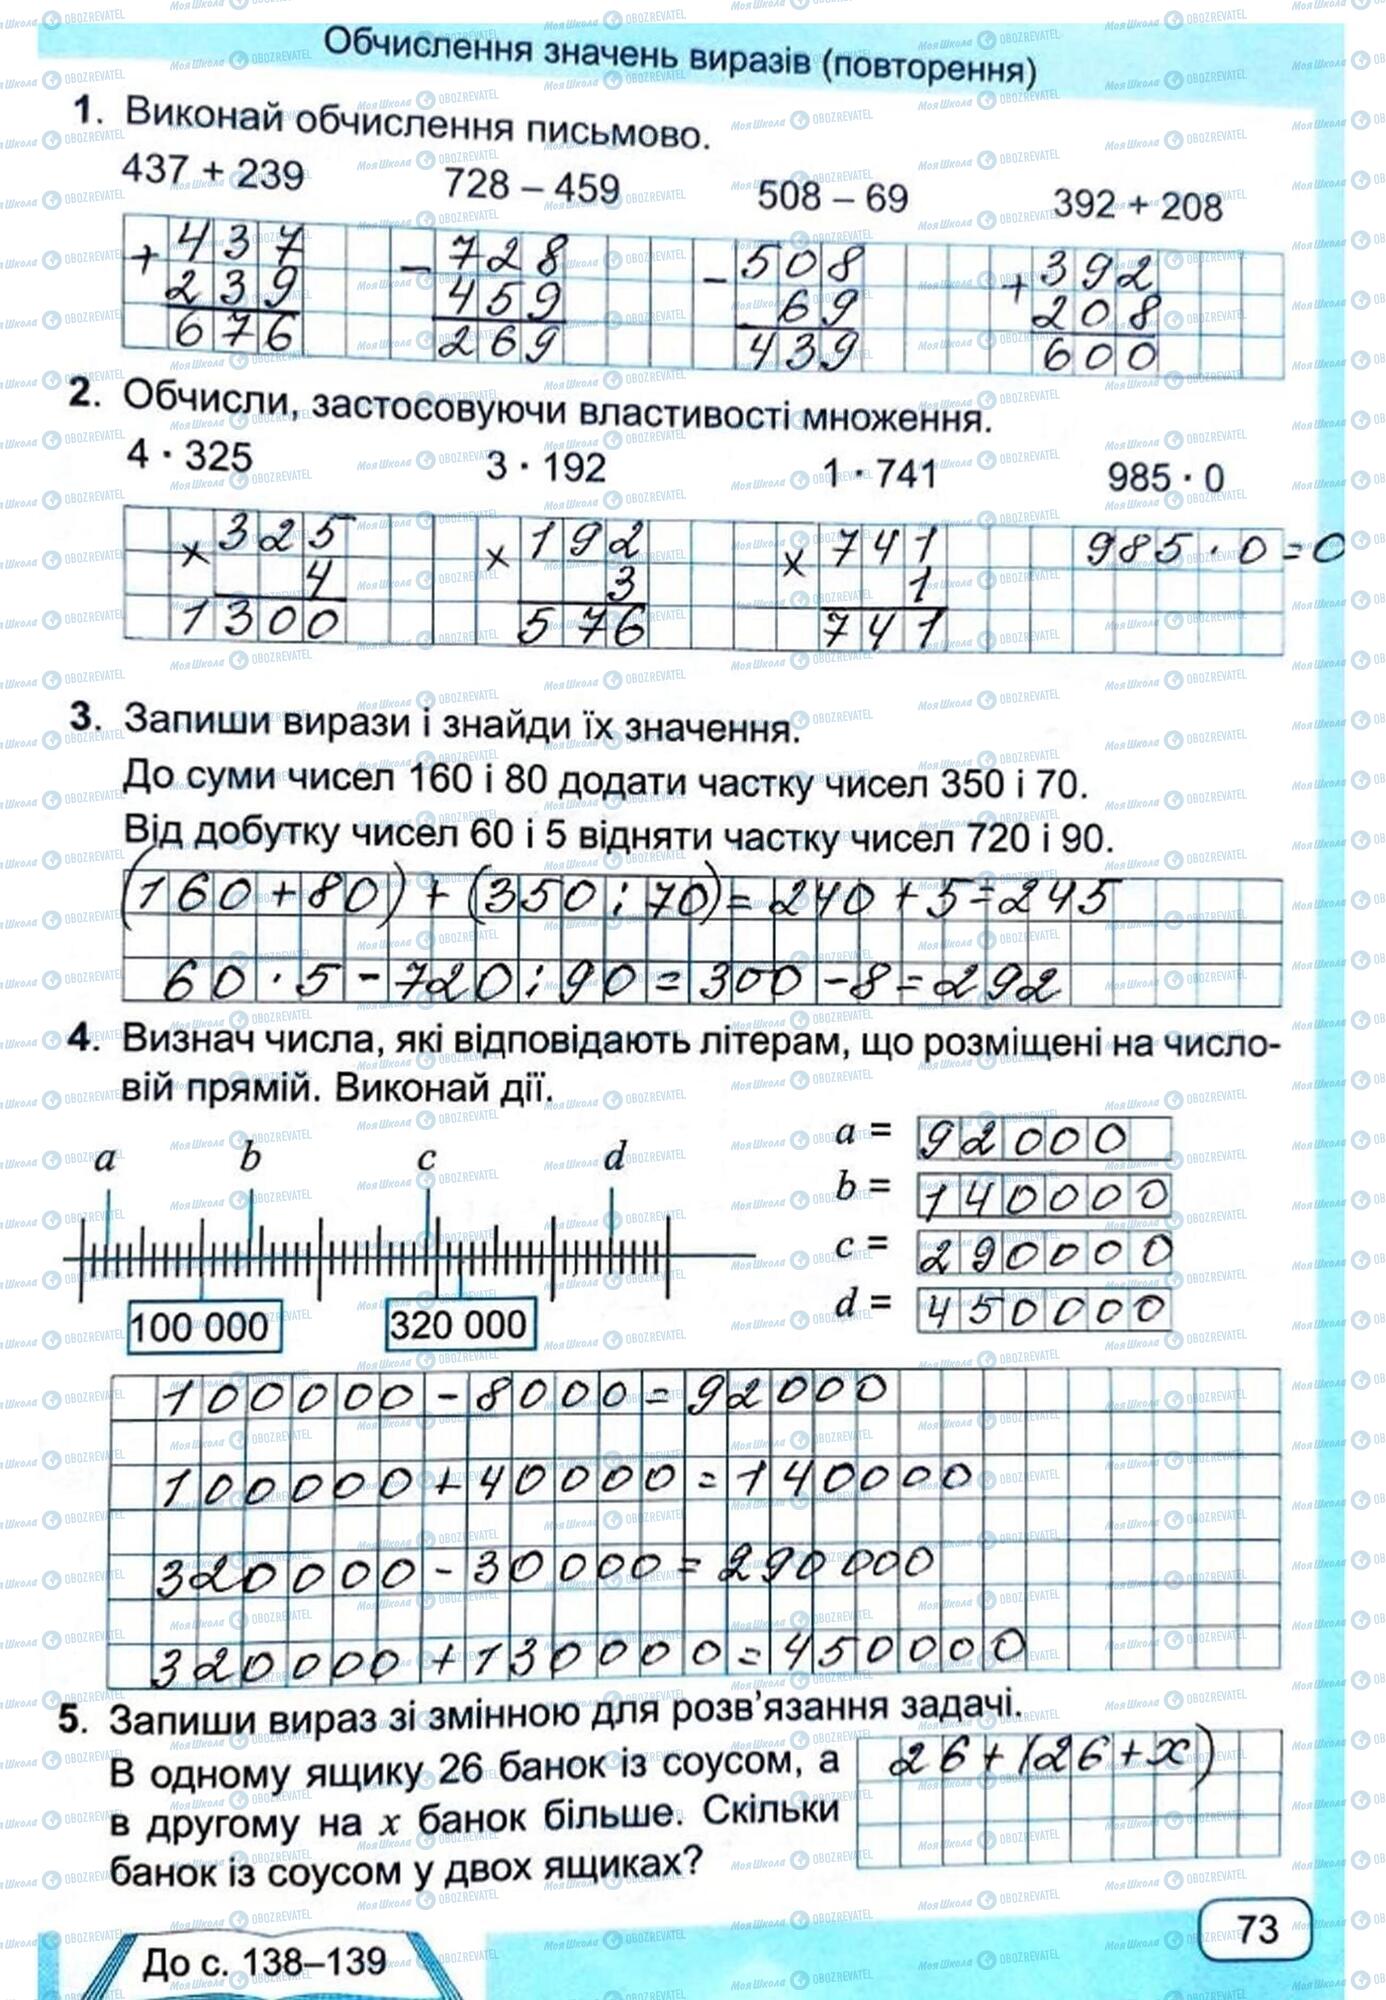 Обчислення значень виразів (повторення)
1. Виконай обчислення письмово.
437 + 239 728 – 459 508 – 69 392 + 208
+ 437 – 728 – 508 + 392
239 459 69 208
676 269 439 600
2. Обчисли, застосовуючи властивості множення.
4 · 325 3 · 192 1 · 741 985 · 0
× 325 × 192 × 741 985 · 0 = 0
4 3 1
1300 576 741
3. Запиши вирази і знайди їх значення.
До суми чисел 160 і 80 додати частку чисел 350 і 70.
Від добутку чисел 60 і 5 відняти частку чисел 720 і 90.
(160 + 80) + (350 : 70) = 240 + 5 = 245
60 · 5 – 720 : 90 = 300 – 8 = 292
4. Визнач числа, які відповідають літерам, що розміщені на число-
вій прямій. Виконай дії.
a b c d
100 000 320 000
a = 92000
b = 140000
c = 290000
d = 450000
100000 – 8000 = 92000
100000 + 40000 = 140000
320000 – 30000 = 290000
320000 + 130000 = 450000
5. Запиши вираз зі змінною для розв’язання задачі.
В одному ящику 26 банок із соусом, а
в другому на x банок більше. Скільки
банок із соусом у двох ящиках?
26 + (26 + x)
73
До с. 138–139
Моя Школа OBOZREVATEL